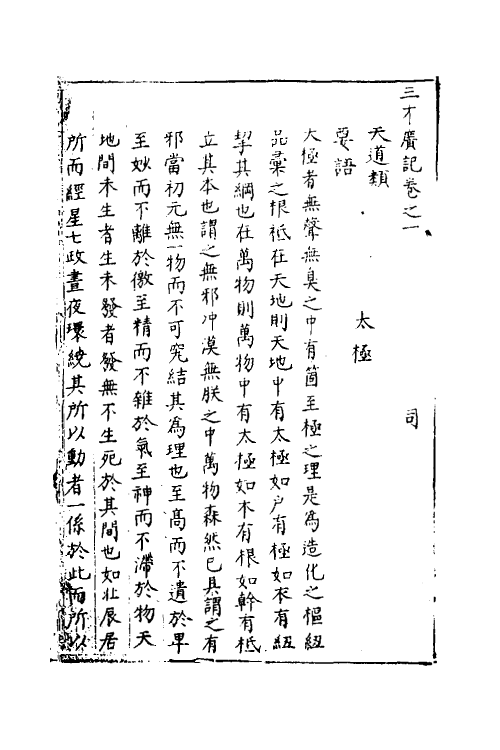 三才廣記卷之一
天道類 太極 司
要語
太極者無聲無臭之中有箇至極之理是為造化之樞紐
品彙之根柢在天地則天地中有太極如户有極如衣有紐
挈其綱也在萬物則萬物中有太極如木有根如幹有柢
立其本也謂之無邪冲漠無朕之中萬物森然已具謂之有
邪當初元無一物而不可究結其為理也至高而不遺於卑
至妙而不離於徼至精而不雜於氣至神而不滯於物天
地間未生者生未發者發無不生死於其間也如北辰居
所而經星七政晝夜環繞其所以動者一係於此而所以